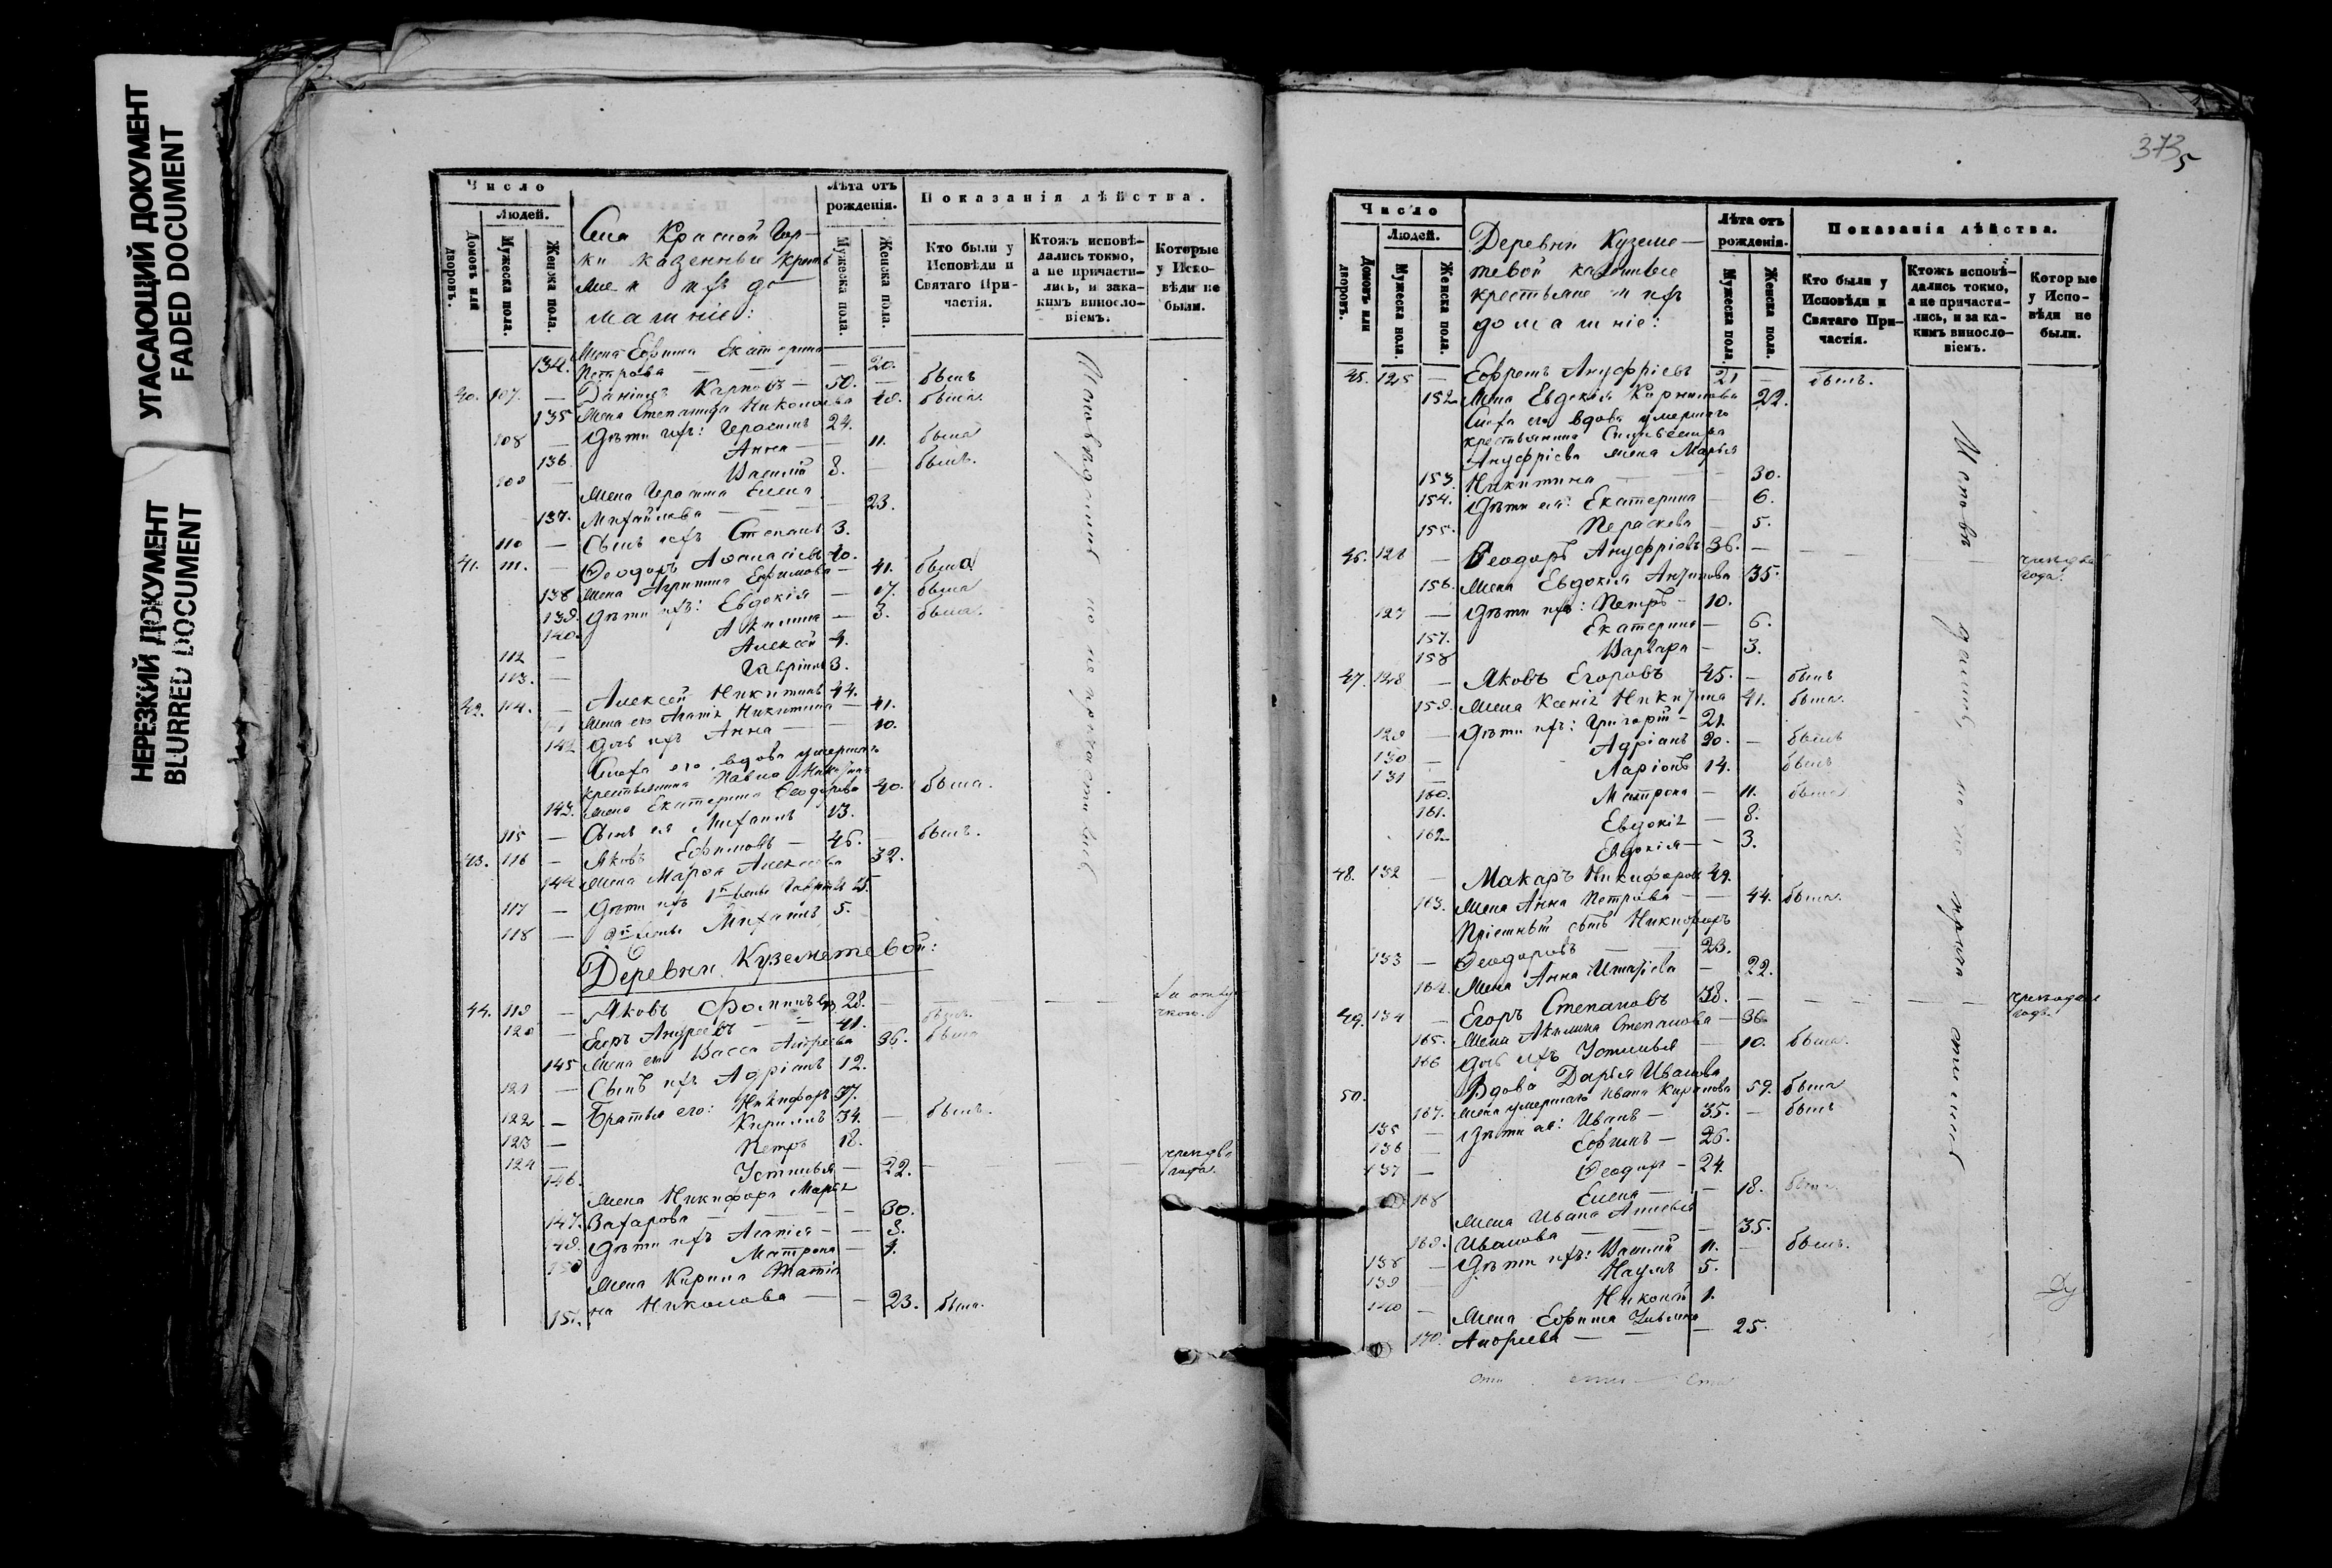 УГАСАЮЩИЙ ДОКУМЕНТ
FADED DOCUMENT
НЕРЕЗКИЙ ДОКУМЕНТ
BLURRED DOCUMENT
Число
Людей.
Домовъ или дворовъ.
Мужеска пола.
Женска пола.
Села Красной Гор-
ки казенные кресть
яне и ихъ до-
машніе:
Лѣта отъ рожденія.
Мужеска пола.
Женска пола.
Показанія дѣйства.
Кто были у Исповѣди и Святаго Причастія.
Ктожъ исповѣдались токмо, а не причастились, и за какимъ винословіемъ.
Которые у Исповѣди не были.
134. Жена Ефима Екатерина
Петрова — — — 20.
40. 107. — Даніилъ Карповъ — 50. — былъ
135 Жена Степанида Николаева 48. была
108 — Дѣти ихъ: Герасимъ 24.
136. Анна — 11. была
109 — Василій 8. — былъ.
Жена Герасима Елена
137. Михайлова — — — 23.
110 — Сынъ ихъ Степанъ 3.
41. 111. — Ѳеодоръ Аѳанасіевъ 40.
138 Жена Агрипина Ефимова — 41. была
139. Дѣти ихъ: Евдокія — 17. была
140. Акилина — 3. была.
112 — Алексѣй 4.
113. — Гавріилъ 3.
42. 114. — Алексѣй Никитинъ 44.
141 Жена его Агапія Никитина — 41.
142 Дочь ихъ Анна — — 10.
Сноха его, вдова умершаго
крестьянина Павла Никитина
143. жена Екатерина Ѳеодорова 40. была.
115 — Сынъ ея Михаилъ 13.
43. 116 — Яковъ Ефимовъ — 46. — былъ.
144 Жена Марѳа Алексѣева 32.
117 — Дѣти ихъ 1й жены Гавріилъ 15.
118 — 2й жены Михаилъ 5.
Деревни Куземетевой:
44. 119 — Яковъ Фоминъ 28. — —
120 — Егоръ Андреевъ — — 41. — былъ.
145 Жена его Васса Андреева 36. была
121 — Сынъ ихъ Адріанъ 12.
122 — Братья его: Никифоръ 37.
123 — Кириллъ 34. — былъ.
124 — Петръ 18.
146. Устинья — 22. —
Жена Никифора Марья
147. Захарова — — — 30.
149. Дѣти ихъ Агапія — — 8.
150 Матрона — 4.
Жена Кирила
151. на Николаева — — 23. была.
Исповѣдались но не причастились
373
5
Число
Людей.
Домовъ или дворовъ.
Мужеска пола.
Женска пола.
Деревни Куземе-
тевой казенные
крестьяне и ихъ
домашніе:
Лѣта отъ рожденія.
Мужеска пола.
Женска пола.
Показанія дѣйства.
Кто были у Исповѣди и Святаго Причастія.
Ктожъ исповѣдались токмо, а не причастились, и за какимъ винословіемъ.
Которые у Исповѣди не были.
45. 125 — Ефремъ Ануфріевъ 21 — былъ.
152 Жена Евдокія Кирилова 22.
Сноха его вдова умершаго
крестьянина Сильвестра
Ануфріева жена Марья
153. Никитина — — 30.
154. Дѣти ея: Екатерина — 6.
155. Параскева — 5.
46. 126 — Ѳеодоръ Ануфріевъ 36. — — —
156. Жена Евдокія Антипова 35.
127 — Дѣти ихъ: Петръ — 10.
157. Екатерина — 6.
158 Варвара — 3.
47. 128 — Яковъ Егоровъ 45. — былъ
159. Жена Ксенія Никитина 41. была.
129 — Дѣти ихъ: Григорій — 21.
130 — Адріанъ 20. — былъ
131 — Ларіонъ 14. былъ
160. Матрона — 11. была
161. Евдокія — 8.
162 Евдокія — — 3.
48. 132 — Макаръ Никифоровъ 49.
163. Жена Анна Петрова — — 44. была.
Пріемный сынъ Никифоръ
133 — Ѳеодоровъ — — 23.
164. Жена Анна — 22.
49. 134 — Егоръ Степановъ 38. — — — — —
165. Жена Акилина Степанова — 36
166 Дочь ихъ Устинья — 10. была.
50. Вдова Дарья Иванова
167. жена умершаго Ивана Кирилова 59. была
135 — Дѣти ея: Иванъ — 35. — былъ
136 — Ефимъ — 26.
137 — Ѳеодоръ — 24.
168 Елена — — 18. была.
Жена Ивана Анисья
169. Иванова — — — 35.
138 — Дѣти ихъ: Василій 11. — былъ.
139 Наумъ 5.
140 — Николай 1.
Жена Ефима Ульяна
170. Андреева — — — 25.
Исповѣдались но не причастились